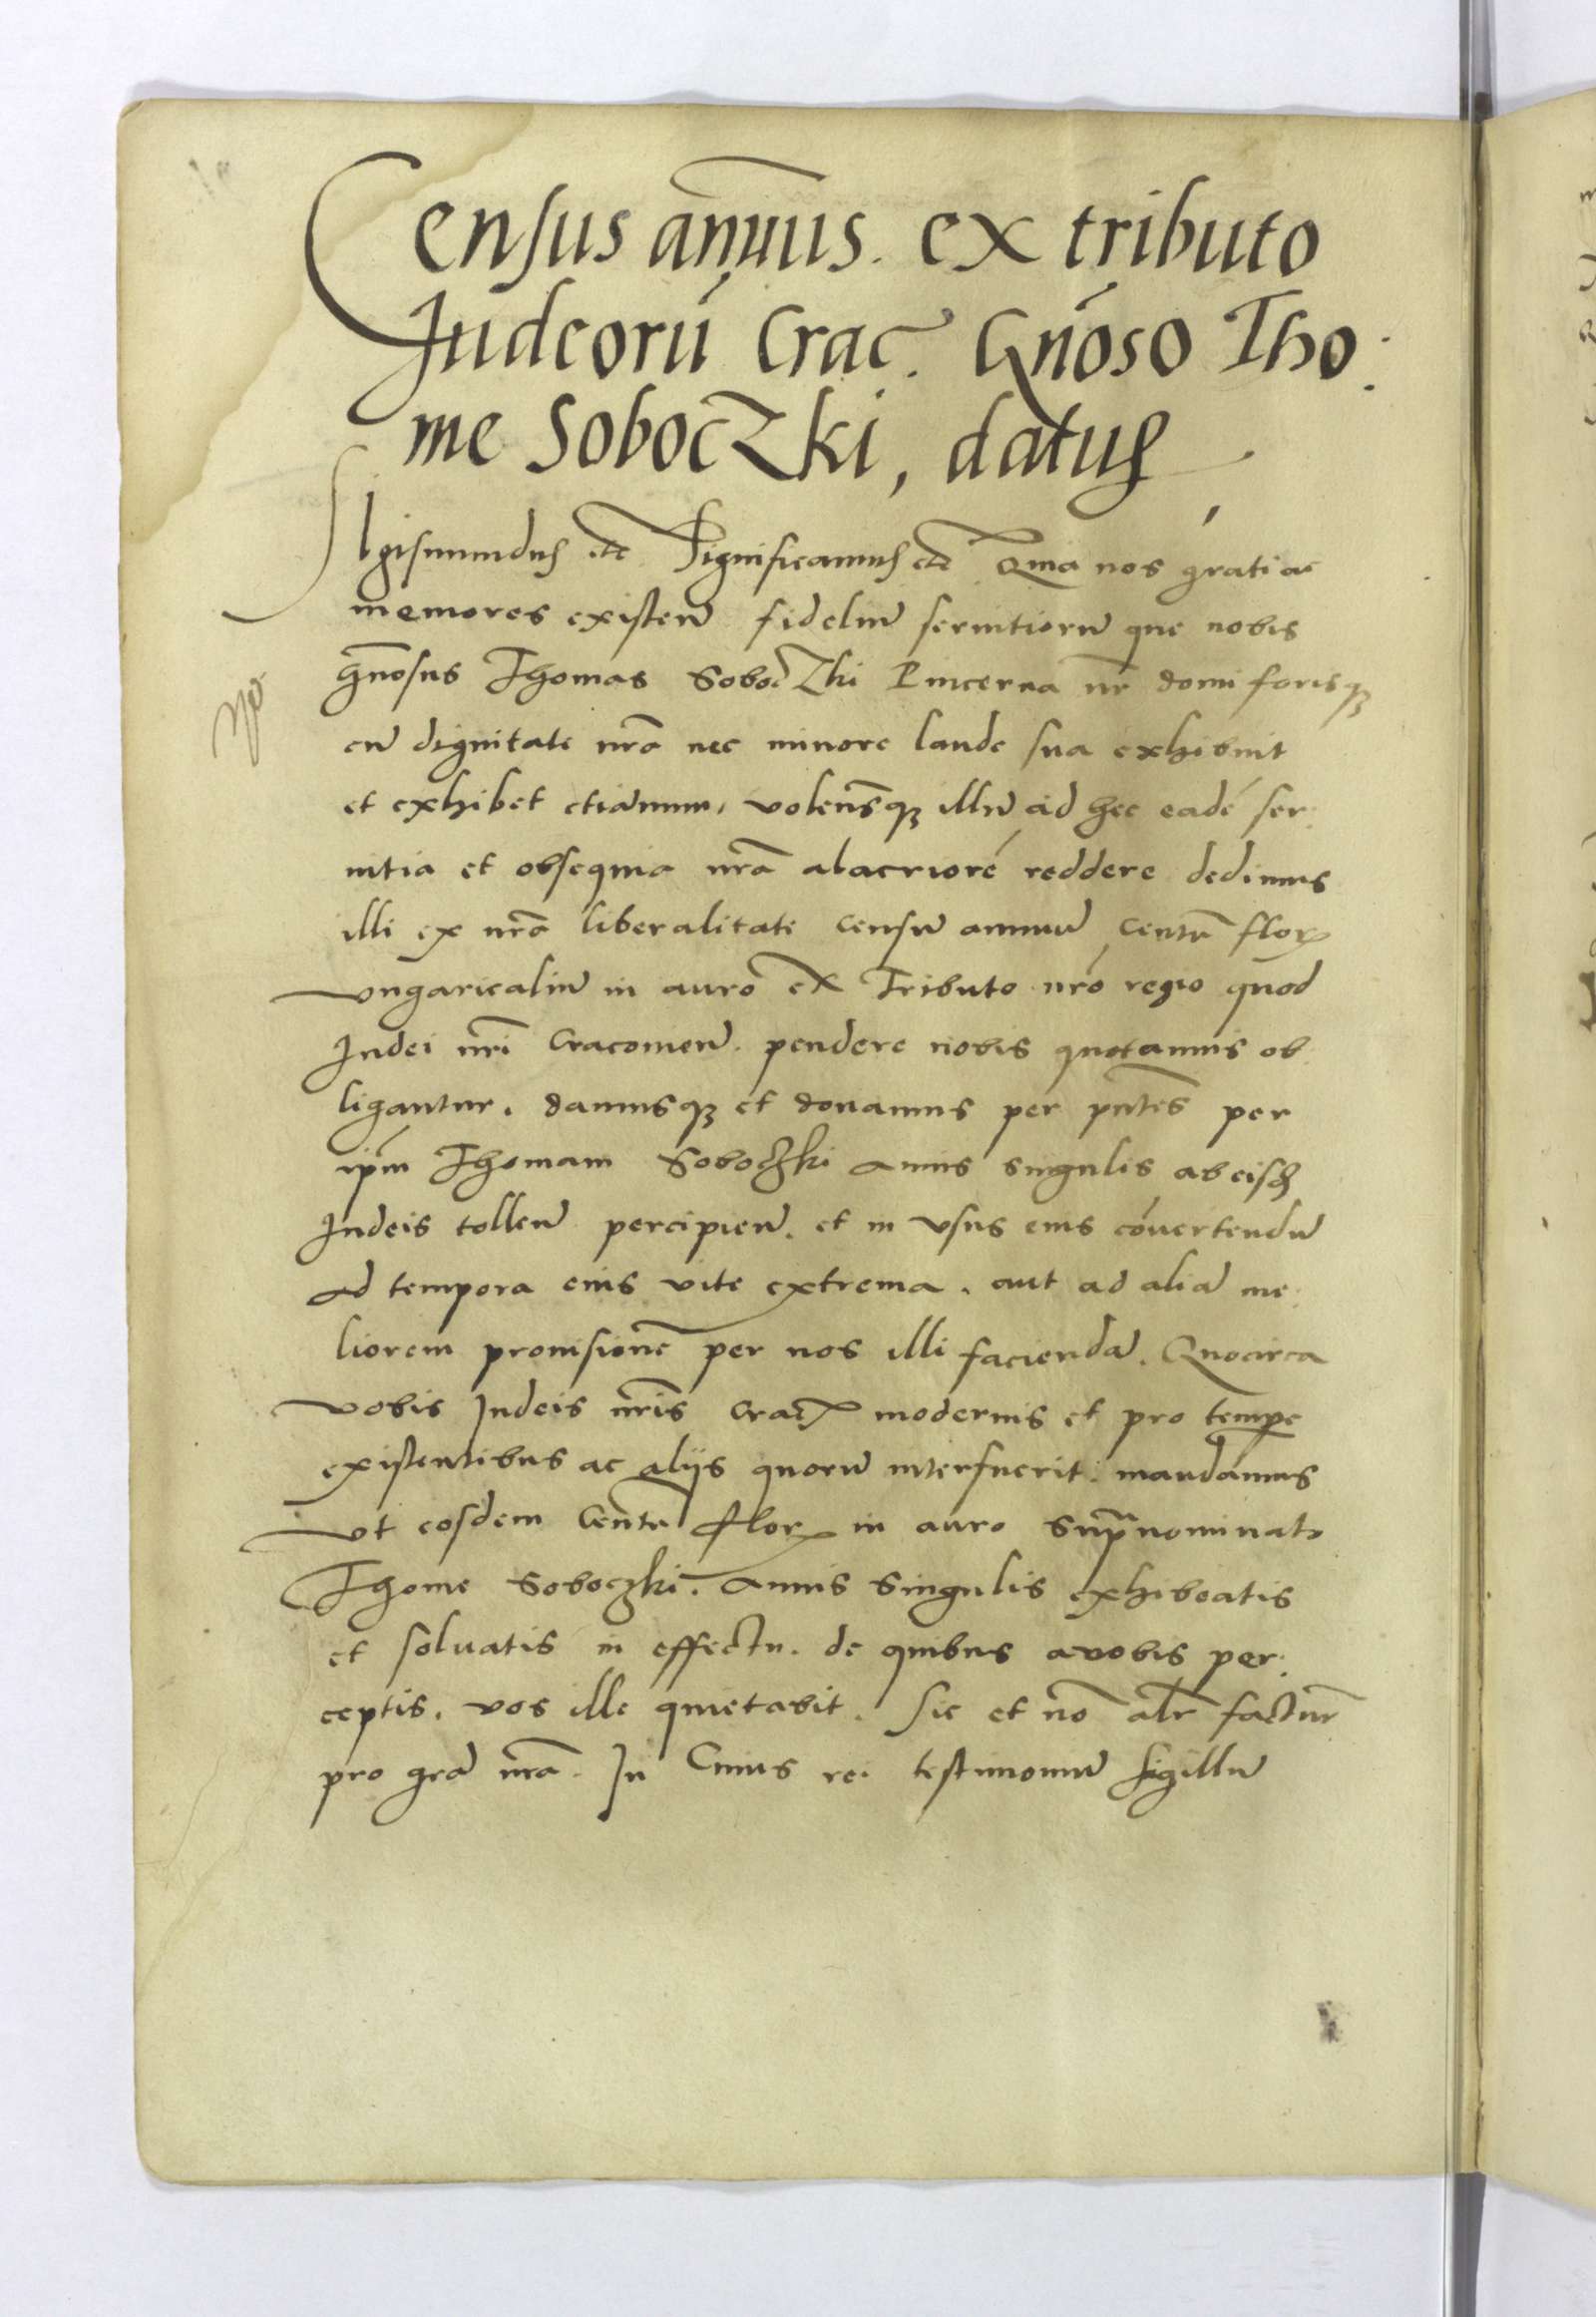 Census annuus. ex tributo
Judeorú Crac. Gnóso Tho:
me Soboczki, datus
Sigismundus etc Significamus etc Quia nos grati ac
memores existen̄ fideliū seruitiorū que nobis
gn̄osus Thomas Soboczki Pincerna nr̄ domi forisqȝ
cū dignitate nrā nec minore laude sua exhibuit
et exhibet etiamnum, volen̄sqȝ illū ad hec eadé ser:
uitia et obsequia nrā alacrioré reddere dedimus
illi ex nrā liberalitate censū annuū centū flor
vngaricaliū in auro ex Tributo nrō regio quod
Judei nrī Cracouien̄. pendere nobis quotannis ob
ligantur. damusqȝ et donamus per pn̄tes per
ipm̄ Thomam Soboczki annis singulis ab eisd
Judeis tollen̄ percipien̄. et in vsus eius cóuertendū
ad tempora eius vite extrema. aut ad aliā me:
liorem prouisionē per nos illi faciendā. Quocirca
vobis Judeis nrīs Crac modernis et pro tempe
existentibus ac alijs quorū interfuerit: mandamus
vt eosdem Centū flor in auro supranominato
Thome Soboczki. annis singulis exhibeatis
et soluatis in effectu. de quibus a vobis per:
ceptis. vos ille quietabit. Sic et nō alr̄ facturi
pro grā nrā. In Cuius rei testimoniū sigillū